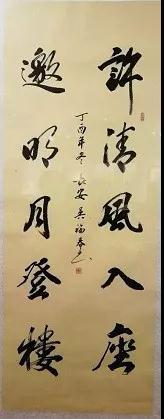 許清風入座
邀明月登樓
丁酉年冬長安吳福春